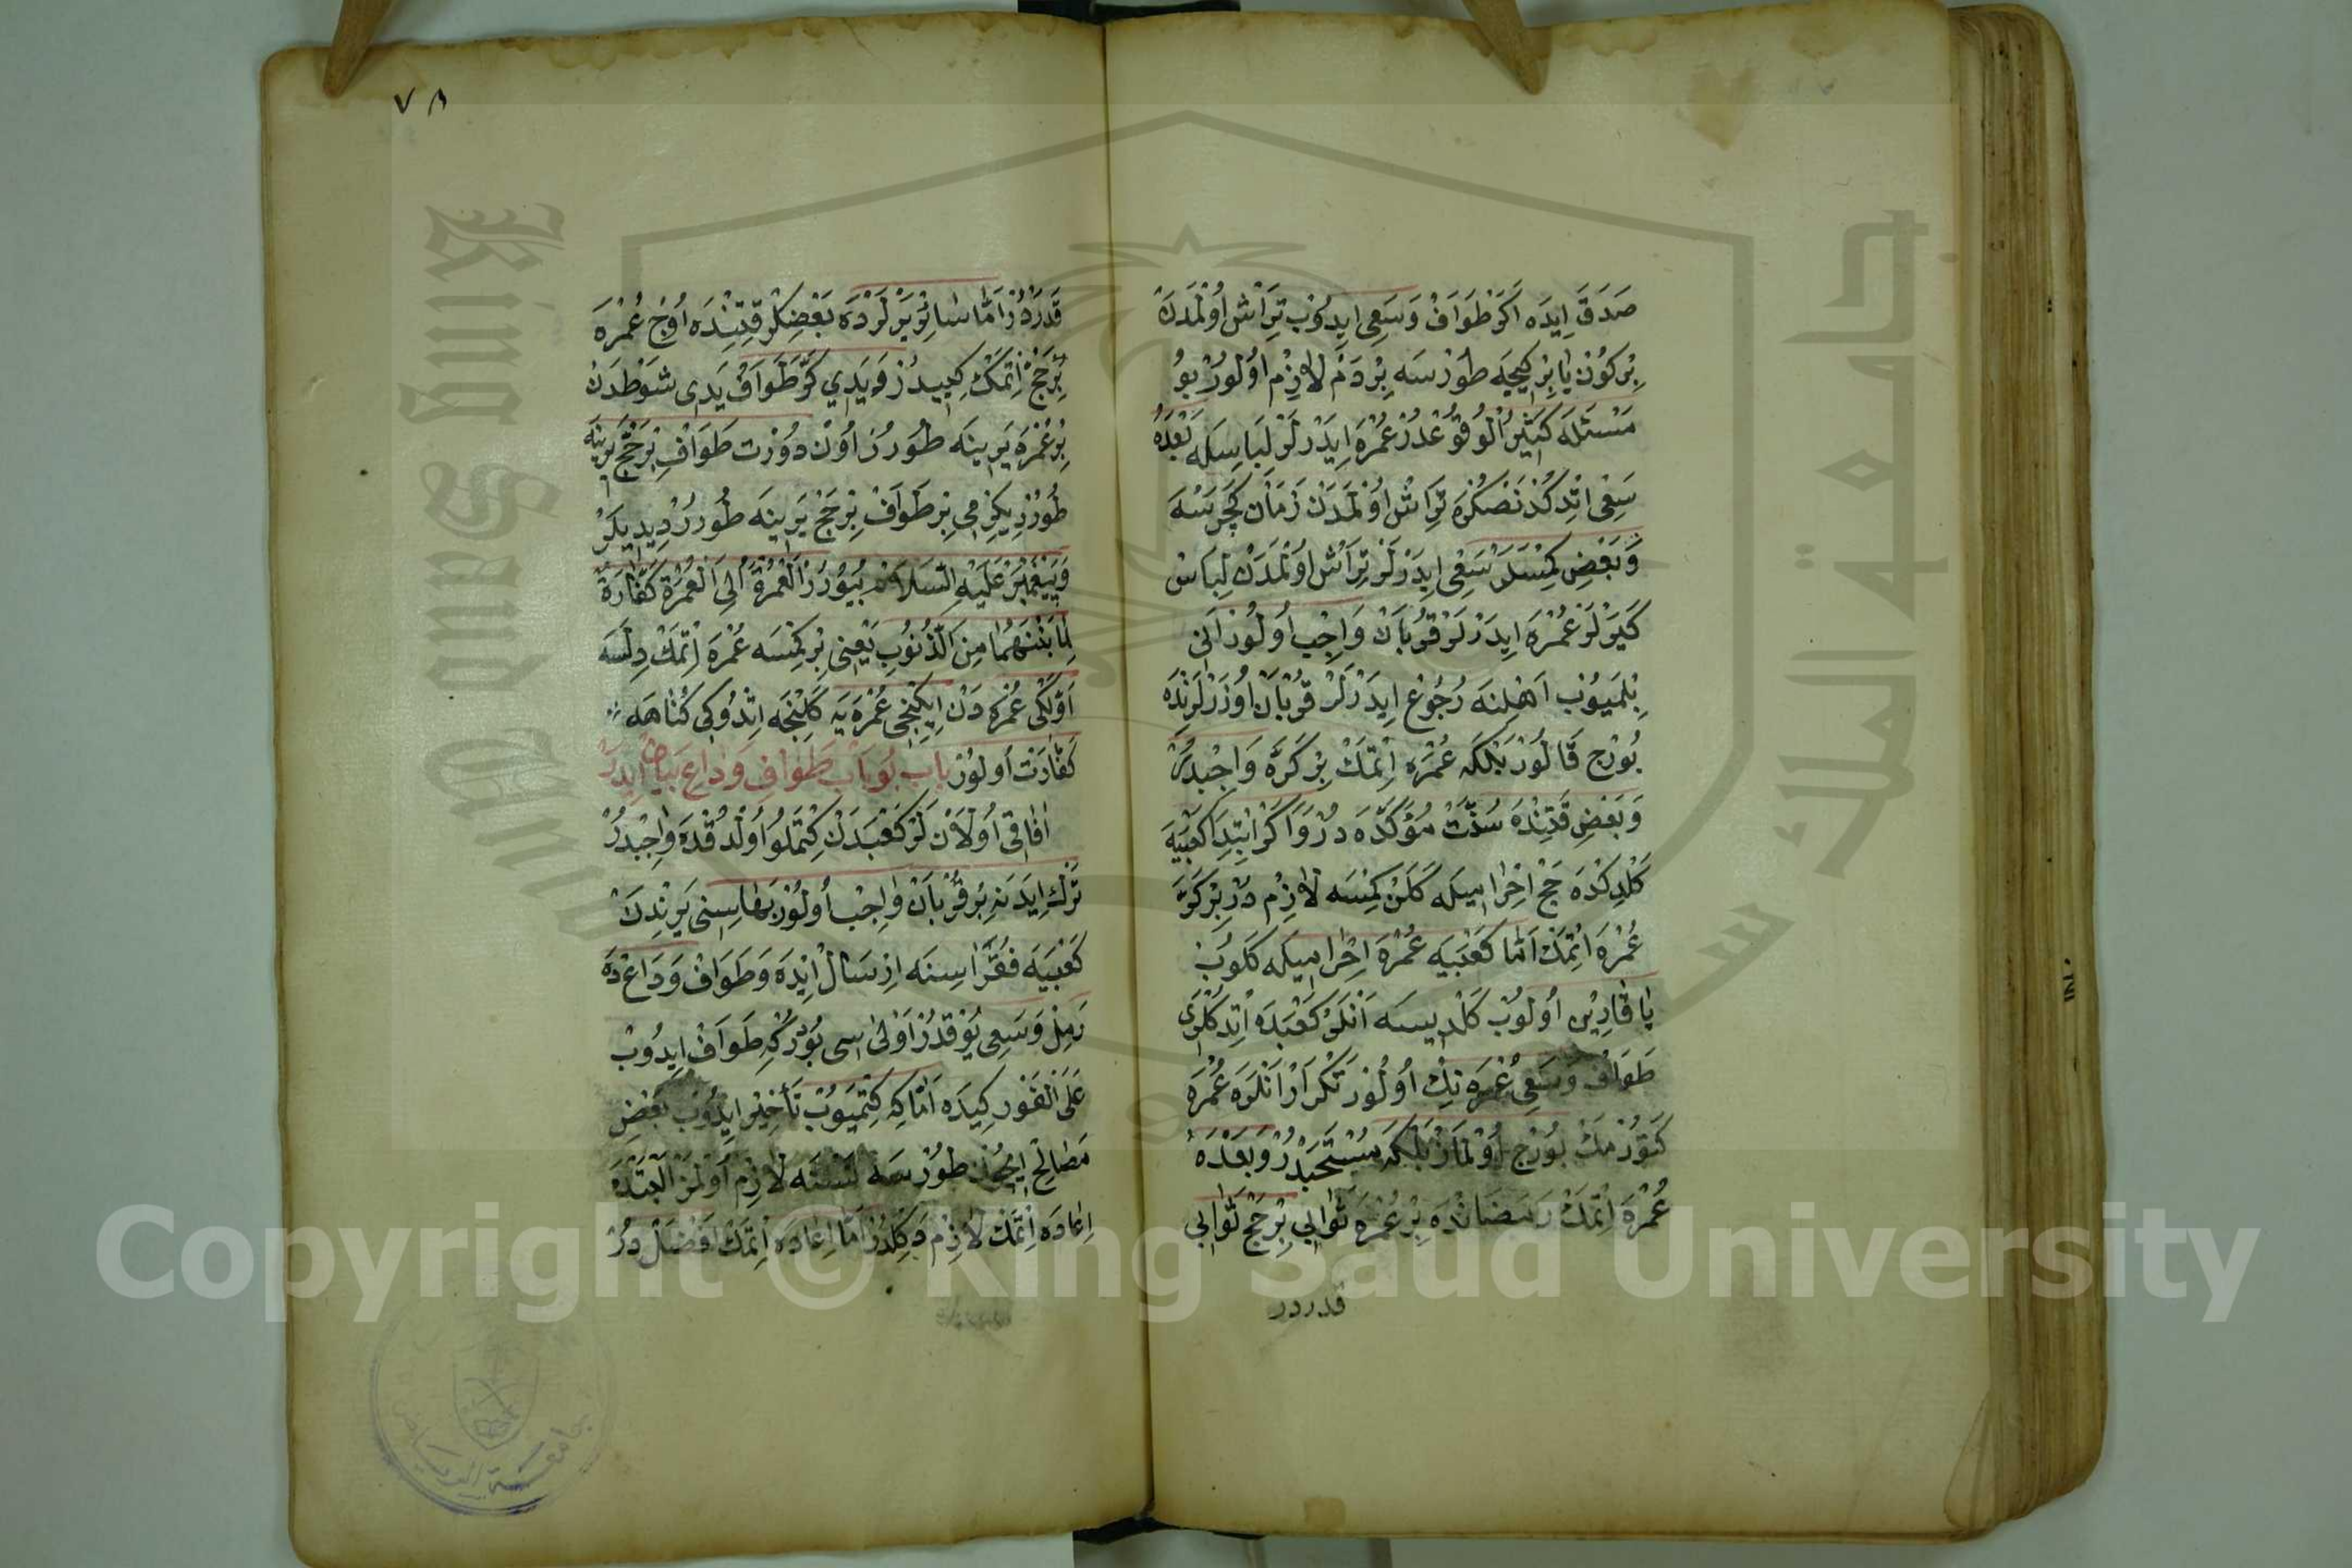 صَدَقَ اِيدَه اَكَرْ طَوَافْ وَسَعِى ايدُوبْ تِرَاشْ اوُلْمَدَنْ
بِرْكوُن يَا بِرْ كيجَه طوُرْسَه بِرْ دَمْ لَازِمْ اوُلوُرْ بوُ
مَسْئَلَه كَثِيرُ الْوُقوُعْدُرْ عُمْرَه اِيدَرْلَرْ لِبَاسِلَه بَعْدَهُ
سَعْى اتْدِكْدَنْصُكْرَه تِرَاشْ اوُلْمَدَنْ زَمَانْ كَچَرْسَه
وَبَعْضِ كِمْسَلَرْ سَعْى ايدَرْلَرْ تِرَاشْ اوُلْمَدَنْ لِبَاسْ
كَيَرْلَرْ عُمْرَه ايدَرْلَرْ قُرْبَانْ وَاجِبْ اوُلوُرْ اَنى
بِلْمَيوُبْ اَهْلِنَه رُجوُعْ ايدَرْلَرْ قُرْبَانْ اوُزَرْلَرِنْدَه
بوُرْج قَالوُرْ بَلْكَه عُمْرَه اِتْمَكْ بِرْ كَرَّه وَاجِبْدُرْ
وَبَعْضِ قَتِنْدَه سُنَّتْ مُؤَكَّدَه دُرْ وَاكَرْ ابْتِدَا كَعْبَيَه
كَلْدِكْدَه حَجْ اِحْرَاميلَه كَلَنْ كِمْسَه لَازِمْ دُرْ بِرْ كَرَّه
عُمْرَه اِتْمَكْ اَمَّا كَعْبَيَه عُمْرَه اِحْرَاميلَه كَلوُبْ
يَا قَارِنْ اوُلوُبْ كَلْديسَه اَنْلَرْ كَعْبَدَه اِتْدِكْلَرى
طَوَافْ وَسَعِى عُمْرَه نِكْ اوُلوُرْ تَكْرَارْ اَنْلَرَه عُمْرَه
كَتوُرْمَكْ بوُرْج اوُلْمَازْ بَلْكَه مُسْتَحَبْدُرْ وَبَعْدَهُ
عُمْرَه اِتْمَكْ رَمَضَانْدَه بِرْ عُمْرَه ثَوَابى بِرْ حَجْ ثَوَابى
قدردر
٧٨
قَدَرْدُرْ اَمَّا سَائِرْ يَرْلَرْدَه بَعْضِيلَرْ قَتِنْدَه اوُچ عُمْرَه
بِرْ حَجْ اِتْمَكْ كِبيدُرْ وَيَدى كَرَّ طَوَافْ يَدى شَوْطدَنْ
بِرْ عُمْرَه يَرينَه طوُرُرْ اوُنْ دوُرْت طَوَافْ بِرْ حَجّ يَرينَه
طوُرُرْ يِكِرْمى بِرْ طَوَافْ بِرْ حَجْ يَرينَه طوُرُرْ ديديلَرْ
وَپَيْغَمْبَرْ عَلَيْهِ السَّلَامْ بُيوُرُرْ اَلْعُمْرَةُ اِلَى الْعُمْرَةِ كَفَّارَةٌ
لِمَا بَيْنَهُمَا مِنَ الذُّنوُبِ يَعْنِى بِرْ كِمْسَه عُمْرَه اِتْمَكْ دِلَسَه
اَوَّلْكى عُمْرَه دَنْ ايكِنْجى عُمْرَه يَه كَلِنْجَه اتْدوُكى كُنَاهَه
كَفَّارَتْ اوُلوُرْ بَابْ بوُ بَابْ طَوَافِ وَدَاعْ بَيَانْ ايدَرْ
افَاقى اوُلَانْ لَرْ كَعْبَدَنْ كِتْمَلوُ اوُلْدُقْدَه وَاجِبْدُرْ
تَرْكْ ايدَنَه بِرْ قُرْبَانْ وَاجِبْ اوُلوُرْ بَهَاسِنى يَرِنْدَنْ
كَعْبَيَه فُقَرَاسِنَه اِرْسَالْ ايْدَه وَطَوَافْ وَدَاعْ دَه
رَمِلْ وَسَعِى يوُقْدُرْ اَوْلَى اسى بوُدُرْكِه طَوَافْ ايدوُبْ
عَلَى الْفَوْر كِيدَه اَمَّا كِه كِتْمَيوُبْ تَأْخِيرْ ايدوُبْ بَعْضِ
مَصَالِحْ ايچوُنْ طوُرْسَه نَسْنَه لَازِمْ اوُلْمَزْ اَلْبَتَّدَه
اِعَادَه اِتْمَكْ لَازِمْ دَكِلْدُرْ اَمَّا اِعَادَه اِتْمَكْ اَفْضَلْ دُرْ
Copyright © King Saud University
جامعة الملك سعود
King Saud University